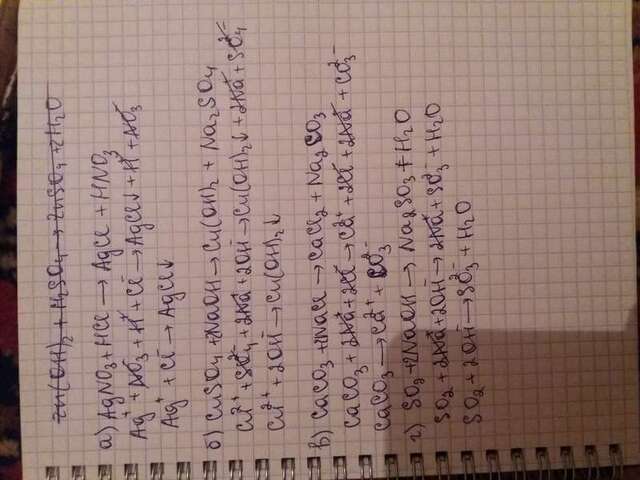 Zn(OH)₂ + H₂SO₄ → ZnSO₄ + 2H₂O
а) AgNO₃ + HCl → AgCl + HNO₃
Ag⁺ + NO₃⁻ + H⁺ + Cl⁻ → AgCl↓ + H⁺ + NO₃⁻
Ag⁺ + Cl⁻ → AgCl↓
б) CuSO₄ + 2NaOH → Cu(OH)₂ + Na₂SO₄
Cu²⁺ + SO₄²⁻ + 2Na⁺ + 2OH⁻ → Cu(OH)₂↓ + 2Na⁺ + SO₄²⁻
Cu²⁺ + 2OH⁻ → Cu(OH)₂↓
в) CaCO₃ + 2NaCl → CaCl₂ + Na₂CO₃
CaCO₃ + 2Na⁺ + 2Cl⁻ → Ca²⁺ + 2Cl⁻ + 2Na⁺ + CO₃²⁻
CaCO₃ → Ca²⁺ + CO₃²⁻
г) SO₂ + 2NaOH → Na₂SO₃ + H₂O
SO₂ + 2Na⁺ + 2OH⁻ → 2Na⁺ + SO₃²⁻ + H₂O
SO₂ + 2OH⁻ → SO₃²⁻ + H₂O